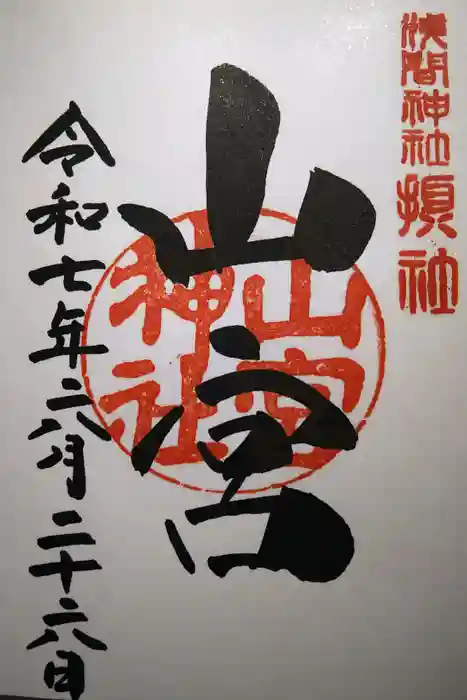 浅間神社摂社
山宮
山宮
神社
令和七年六月二十六日